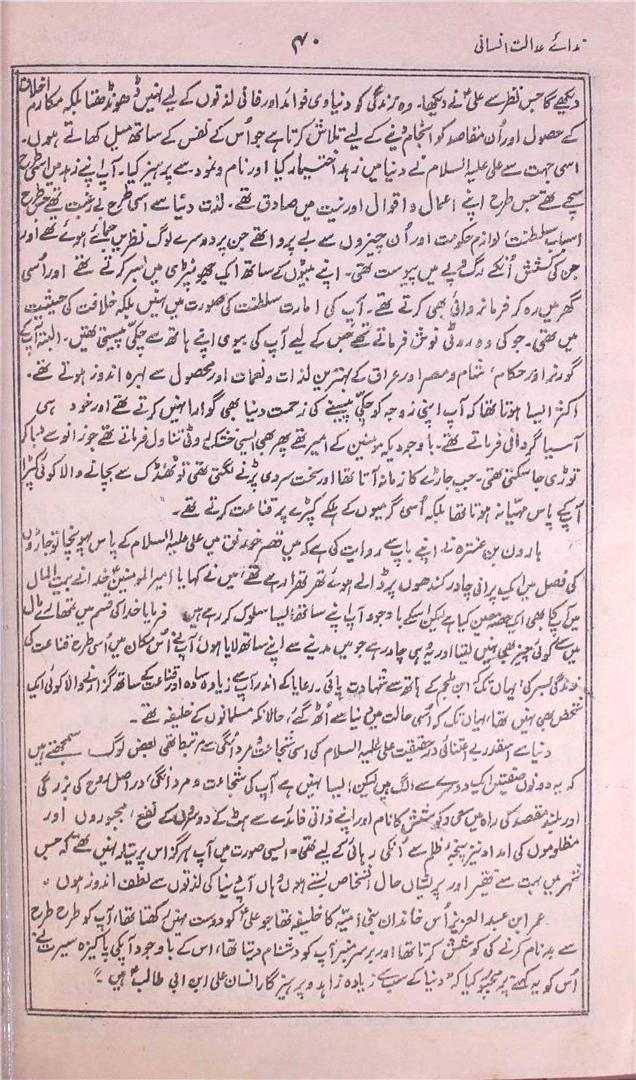 ندائے عدالت انسانی
۴۰
دیکھے گا جس نظر سے علیؑ نے دیکھا۔ وہ زندگی کو دنیاوی فوائد اور فانی لذتوں کے لیے نہیں ڈھونڈھتا بلکہ مکارم اخلاق
کے حصول اور اُن مقاصد کو انجام دینے کے لیے تلاش کرتا ہے جو اُس کے نفس کے ساتھ میل کھاتے ہوں۔
اسی جہت سے علی علیہ السلام نے دنیا میں زہد اختیار کیا اور نام و نمود سے پرہیز کیا۔ آپ اپنے زہد میں اسی طرح
سچے تھے جس طرح اپنے اعمال و اقوال اور نیت میں صادق تھے۔ لذت دنیا سے اسی طرح بے رغبت تھے جس طرح
اسباب سلطنت، لوازم حکومت اور اُن چیزوں سے بے پروا تھے جن پر دوسرے لوگ نظریں جمائے ہوئے تھے اور
جن کی کشش اُنکے رگ و پے میں پیوست تھی۔ اپنے بیٹوں کے ساتھ ایک جھونپڑی میں بسر کرتے تھے اور اُسی
گھر میں رہ کر فرمانروائی بھی کرتے تھے۔ آپ کی امارت سلطنت کی صورت میں نہیں بلکہ خلافت کی حیثیت
میں تھی۔ جو کی وہ روٹی نوش فرماتے تھے جس کے لیے آپ کی بیوی اپنے ہاتھ سے چکی پیستی تھیں۔ البتہ آپ کے
گورنر اور حکام، شام و مصر اور عراق کے بہترین لذات و نعمات اور محصول سے بہرہ اندوز ہوتے تھے۔
اکثر ایسا ہوتا تھا کہ آپ اپنی زوجہ کو چکی پیسنے کی زحمت دنیا بھی گوارا نہیں کرتے تھے اور خود ہی
آسیا گردانی فرماتے تھے۔ باوجودیکہ مومنین کے امیر تھے پھر بھی ایسی خشک روٹی تناول فرماتے تھے جو زانو سے دبا کر
توڑی جا سکتی تھی۔ جب جاڑے کا زمانہ آتا تھا اور سخت سردی پڑنے لگتی تھی تو ٹھنڈک سے بچانے والا کوئی کپڑا
آپ کے پاس مہیّا نہ ہوتا تھا بلکہ اُسی گرمیوں کے ہلکے کپڑے پر قناعت کرتے تھے۔
ہارون بن عنترہ نے اپنے باپ سے روایت کی ہے کہ میں قصر خورنق میں علی علیہ السلام کے پاس پہونچا تو جاڑوں
کی فصل میں ایک پرانی چادر کندھوں پر ڈالے ہوئے تھر تھرا رہے تھے، میں نے کہا یا امیر المومنینؑ خدا نے بیت المال
میں آپ کا بھی ایک حصہ معین کیا ہے لیکن اسکے باوجود آپ اپنے ساتھ ایسا سلوک کر رہے ہیں فرمایا خدا کی قسم میں تمھارے مال
میں سے کوئی چیز بھی نہیں لیتا اور یہ وہی چادر ہے جو میں مدینے سے اپنے ساتھ لایا ہوں، آپ نے اُس مکان میں اُسی طرح قناعت کی
زندگی بسر کی، یہاں تک کہ ابن ملجم کے ہاتھ سے شہادت پائی۔ رعایا کے اندر آپ سے زیادہ سادہ اور قناعت کے ساتھ گزارنے والا کوئی ایک
شخص بھی نہیں تھا، یہاں تک کہ اُسی حالت میں دنیا سے اُٹھ گئے، حالانکہ مسلمانوں کے خلیفہ تھے۔
دنیا سے اسقدر بے اعتنائی در حقیقت علی علیہ السلام کی اسی شجاعت و مردانگی سے مرتبط تھی بعض لوگ سمجھتے ہیں
کہ یہ دونوں صفتیں ایک دوسرے سے الگ ہیں لیکن ایسا نہیں ہے آپ کی شجاعت و مردانگی، در اصل روح کی بزرگی
اور بلند مقصد کی راہ میں سعی و کوشش کا نام اور اپنے ذاتی فائدے سے ہٹ کے دوسروں کے نفع، مجبوروں اور
مظلوموں کی امداد نیز پنجۂ ظلم سے اُنکی رہائی کے لیے تھی۔ ایسی صورت میں آپ ہرگز اس پر تیار نہیں تھے کہ جس
شہر میں بہت سے فقیر اور پریشاں حال اشخاص بستے ہوں وہاں آپ دنیا کی لذتوں سے لطف اندوز ہوں۔
عمر ابن عبد العزیز اُس خاندان بنی امیّہ کا خلیفہ تھا جو علیؑ کو دوست نہیں رکھتا تھا، آپ کو طرح طرح
سے بدنام کرنے کی کوشش کرتا تھا اور بر سر منبر آپ کو دشنام دیتا تھا، اس کے باوجود آپکی پاکیزہ سیرت نے
اُس کو یہ کہنے پر مجبور کیا کہ "دنیا کے سب سے زیادہ زاہد و پرہیز گار انسان علی ابن ابی طالبؑ ہیں۔"